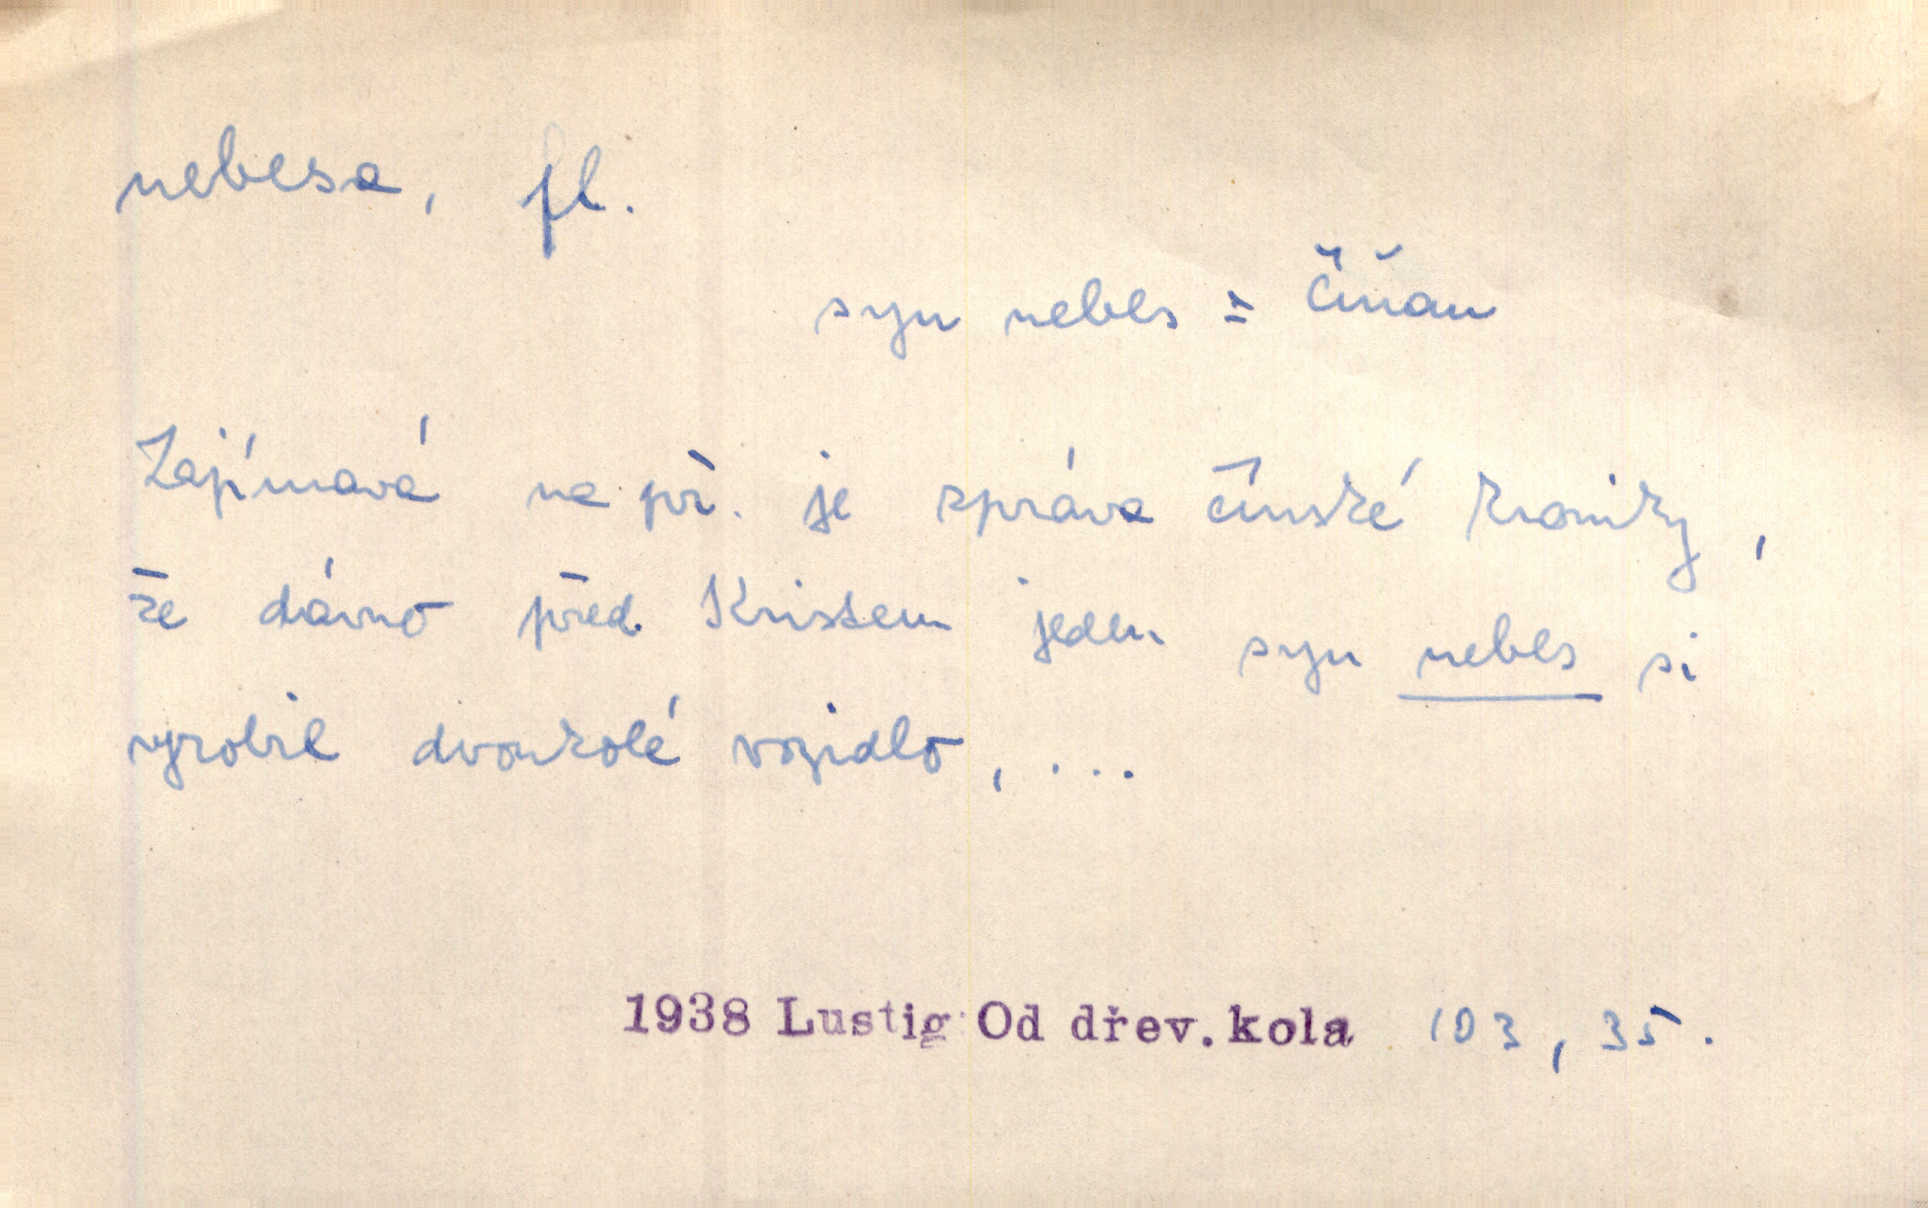 nebesa, pl.
syn nebes = Číňan
Zajímavá na př. je zpráva čínské kroniky,
že dávno před Kristem jeden syn nebes si
vyrobil dvoukolé vozidlo, ...
1938 Lustig Od dřev. kola 103, 35.